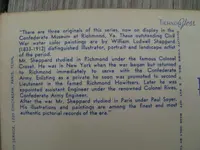 "There are three originals of this series, now on display in the
Confederate Museum at Richmond, Va. These outstanding Civil
War water color paintings are by William Ludwell Sheppard
(1833-1912) distinguished illustrator, portrait and landscape artist
of the period.
Mr. Sheppard studied in New York under the famous Colonel
Crozet. He was in New York when the war began but returned
to Richmond immediately to serve with the Confederate
Army. Enlisting as a private he soon was promoted to second
Lieutenant in the famed Richmond Howitzers. Later he was
appointed assistant Engineer under the renowned Colonel Elins,
Confederate Army Engineer.
After the war Mr. Sheppard studied in Paris under Paul Soyer.
His illustrations and paintings are among the finest and most
authentic pictorial records of the era."